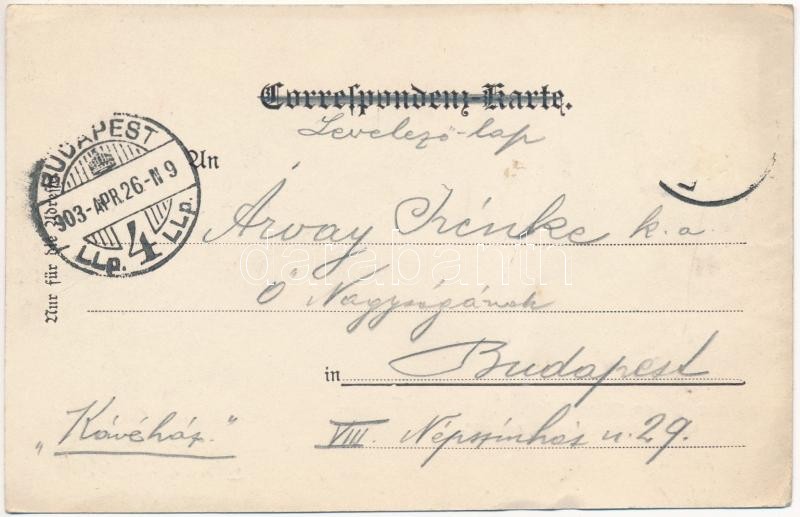 Correspondenz-Karte.
Levelező-lap
An
Árvay Irénke k. a.
Ő Nagyságának
in Budapest
VIII. Népszínház u. 29.
„Kávéház."
Nur für die Adresse
BUDAPEST
903-APR.26-N 9
LLp. 4 LLp.
darabanth.com